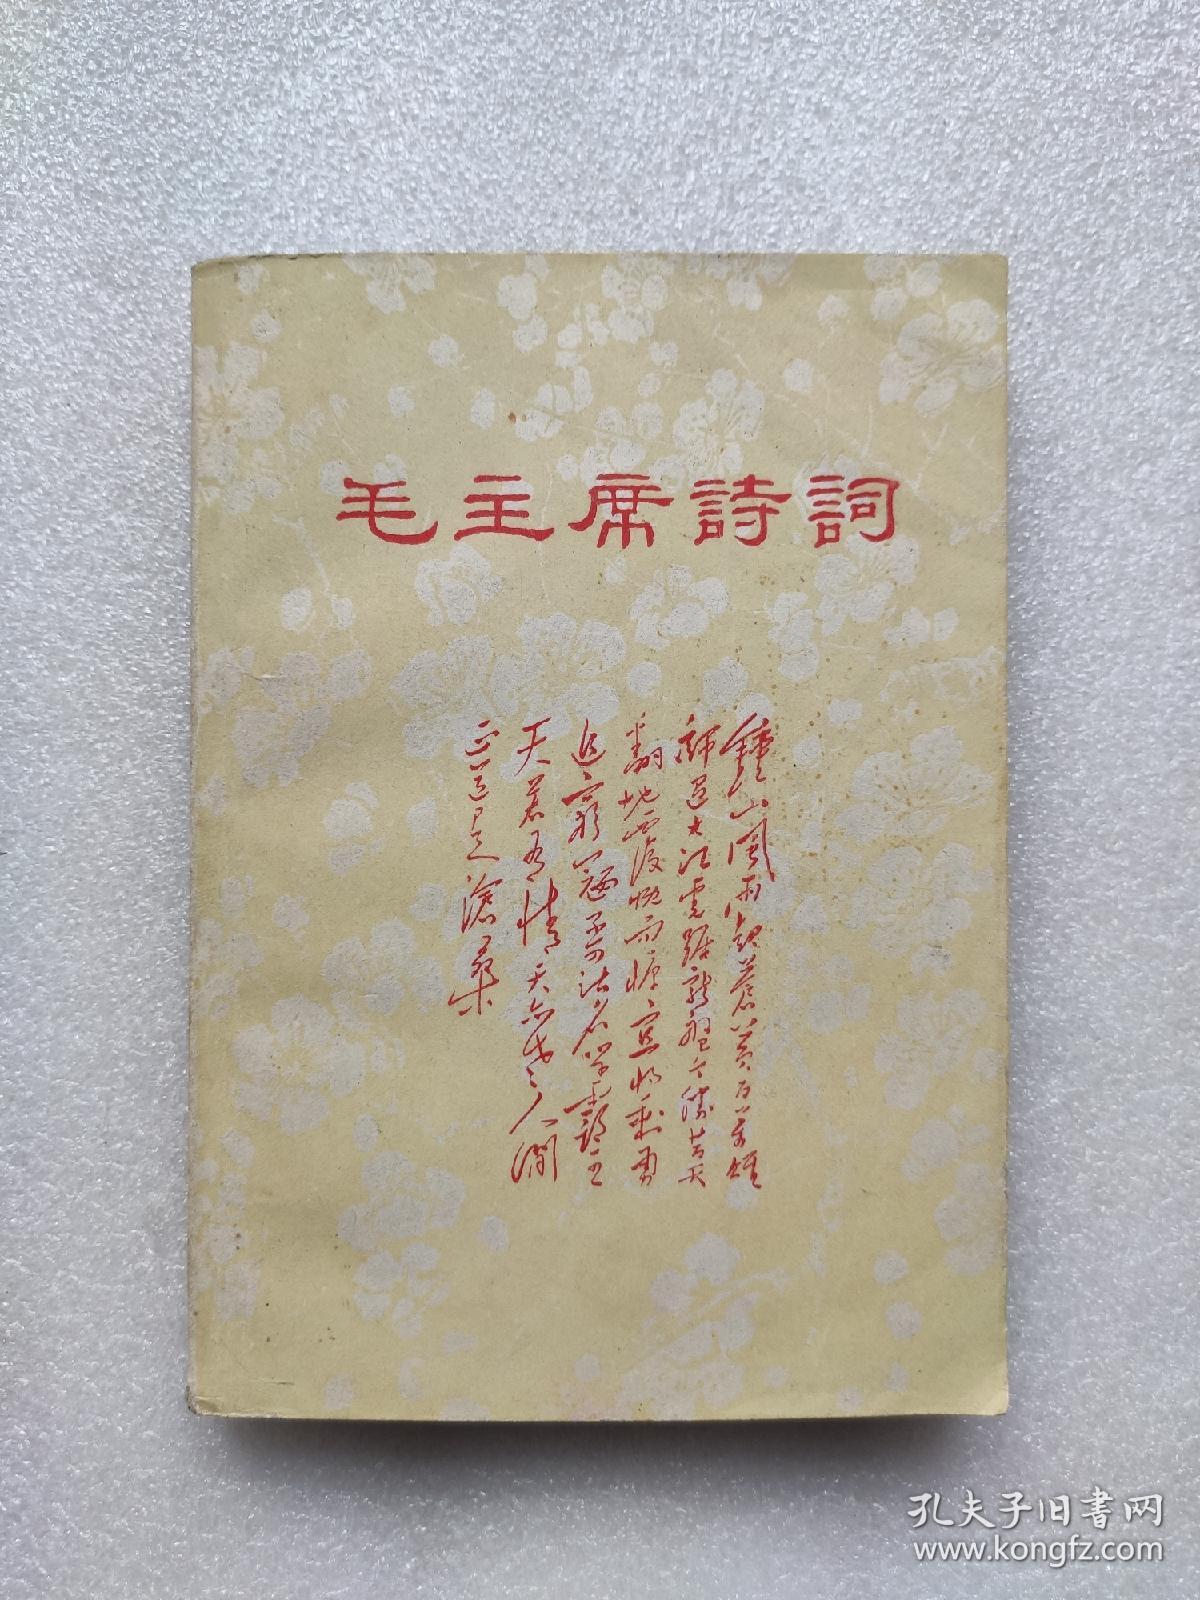 毛主席詩詞
鍾山風雨起蒼黄百万雄
師過大江虎踞龍盤今勝昔天
翻地覆慨而慷宜将剩勇
追窮寇不可沽名学霸王
天若有情天亦老人間
正道是滄桑
孔夫子旧书网
www.kongfz.com